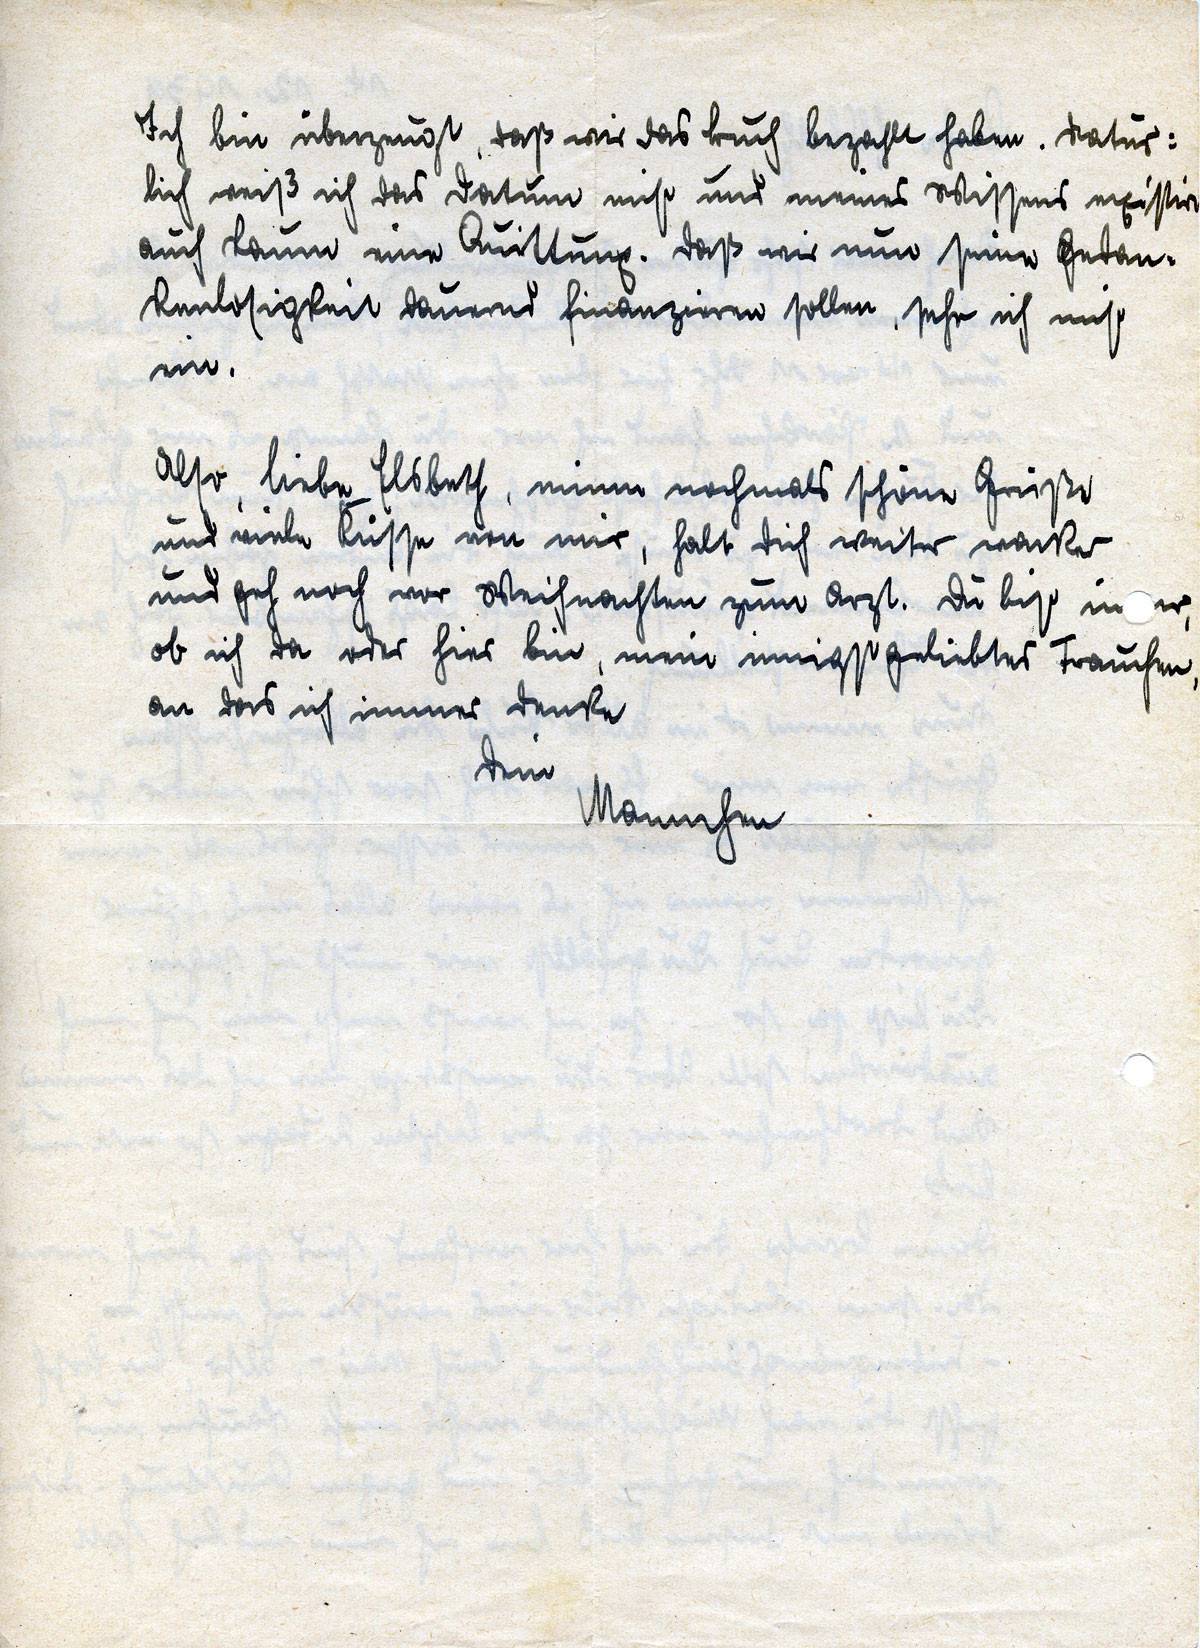 Ich bin überzeugt, daß wir das Buch bezahlt haben. Natür:
lich weiß ich das Datum nicht und meines Wissens existiert
auch kaum eine Quittung. Daß wir nun seine Gedan-
kenlosigkeit dauernd finanzieren sollen, sehe ich nicht
ein.
Also, liebe Elsbeth, nimm nochmals schöne Grüße
und viele Küsse von mir, halt dich weiter wacker
und geh noch vor Weihnachten zum Arzt. Du bist
ob ich da oder hier bin, mein innigst geliebtes Frauchen,
an das ich immer denke
Dein
Mannchen